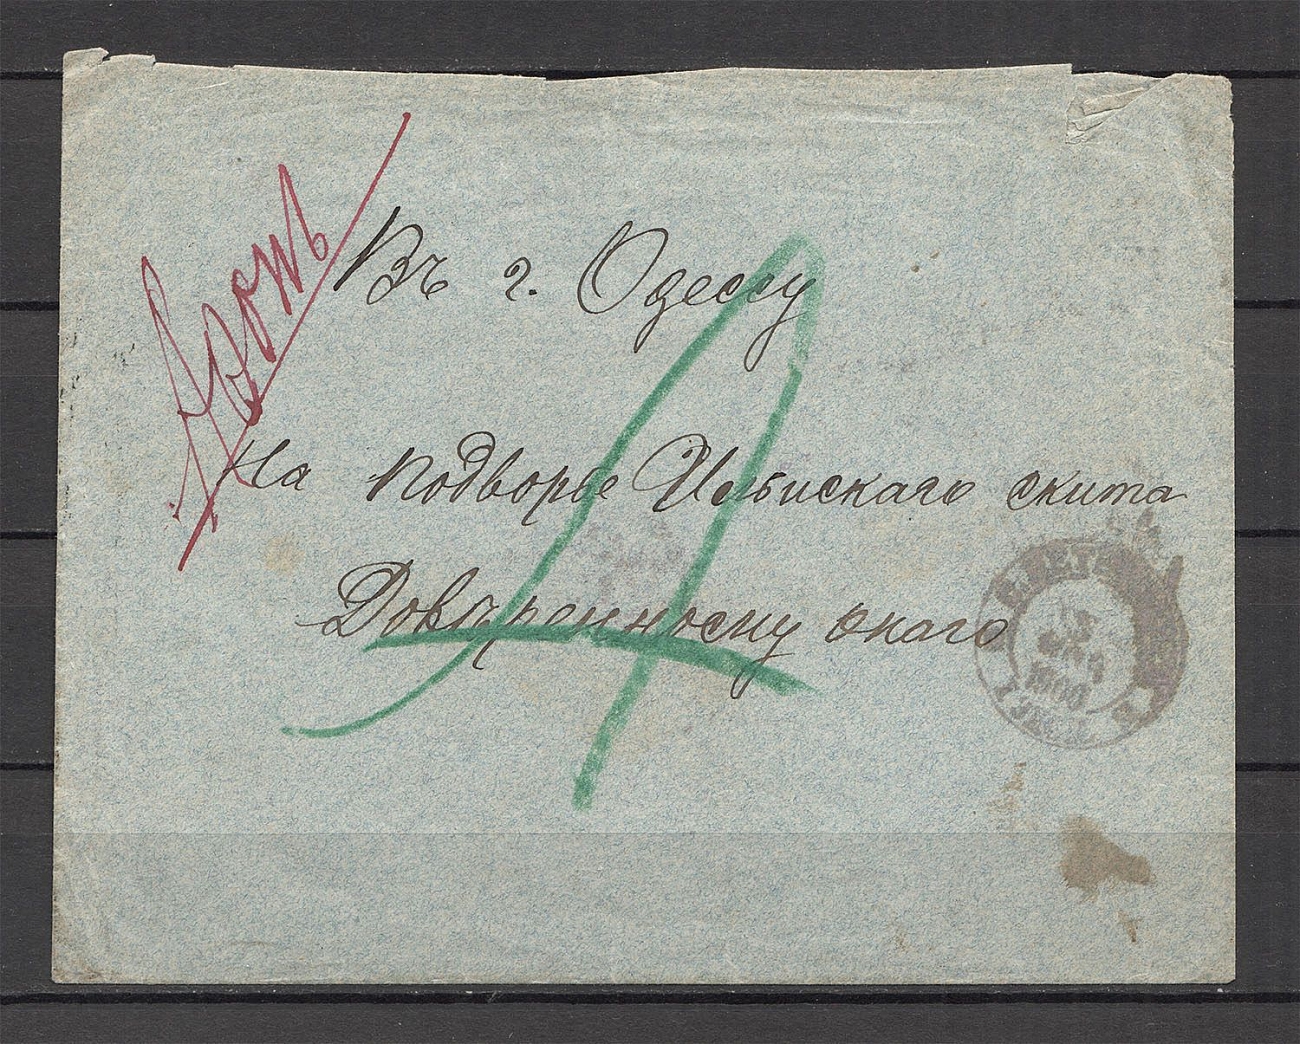 Въ г. Одессу
На подворье Ильискаго скита
Довѣренному онаго
Д
1900